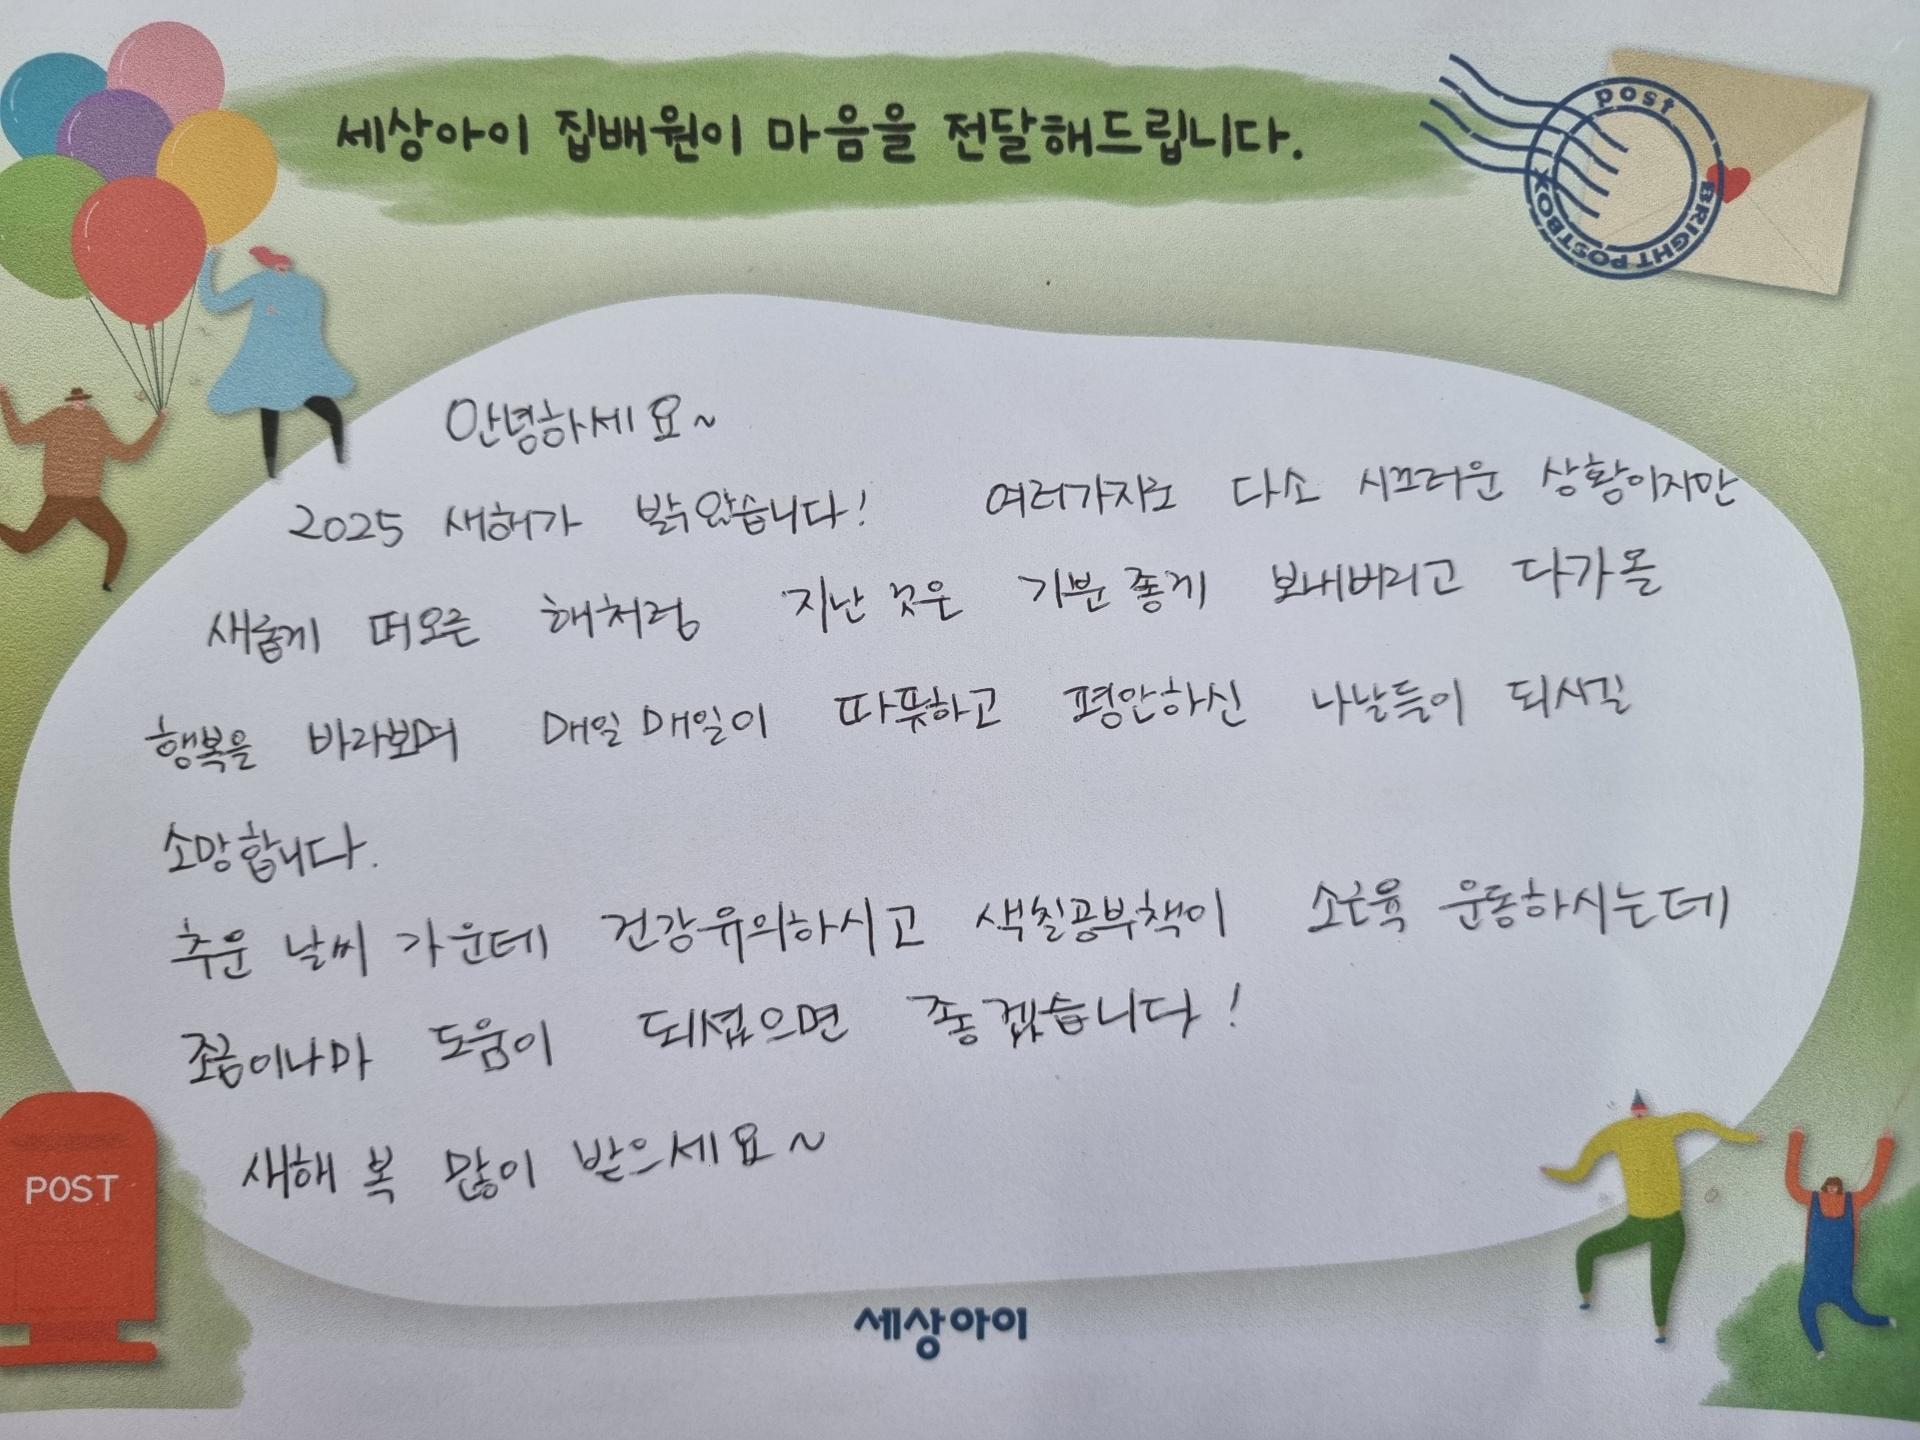 세상아이 집배원이 마음을 전달해드립니다.
post
BRIGHT POSTBOX
안녕하세요~
2025 새해가 밝았습니다! 여러가지로 다소 시끄러운 상황이지만
새롭게 떠오른 해처럼 지난 것은 기분 좋게 보내버리고 다가올
행복을 바라보며 매일매일이 따뜻하고 평안하신 나날들이 되시길
소망합니다.
추운 날씨 가운데 건강유의하시고 색칠공부책이 소근육 운동하시는데
조금이나마 도움이 되셨으면 좋겠습니다!
새해 복 많이 받으세요~
POST
세상아이